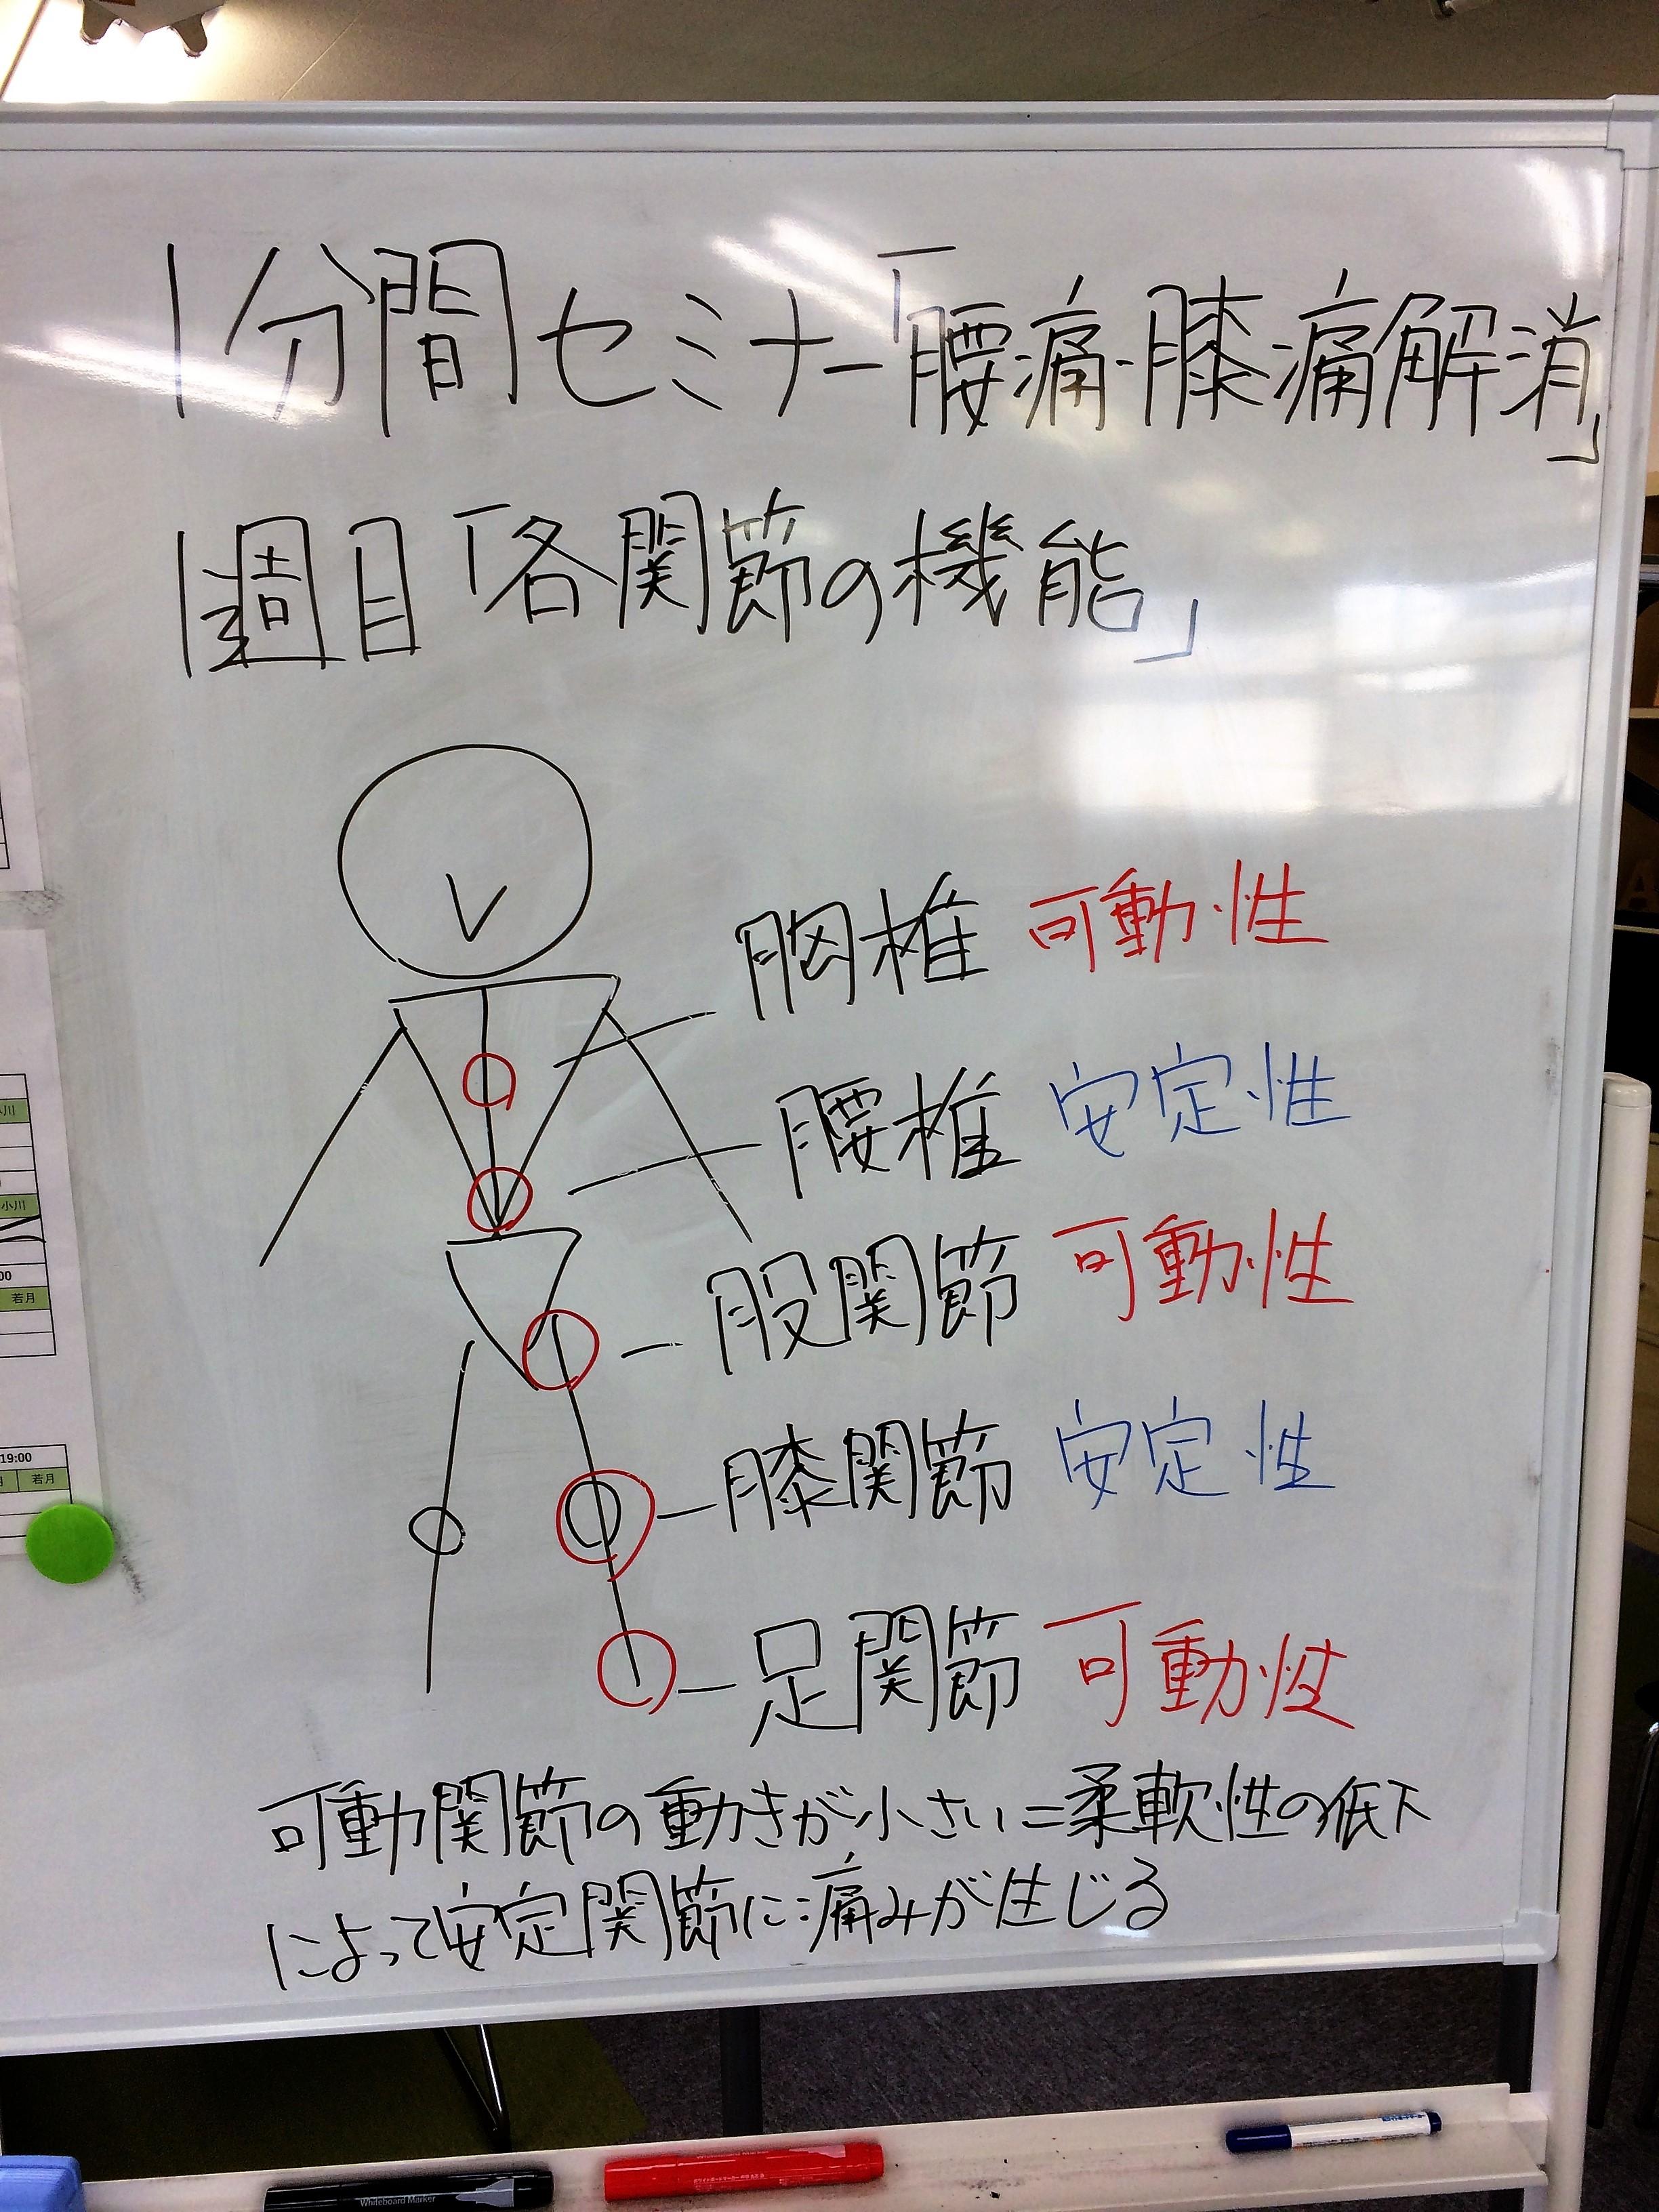 1分間セミナー「腰痛・膝痛解消」
1週目「各関節の機能」
胸椎 可動性
腰椎 安定性
股関節 可動性
膝関節 安定性
足関節 可動性
可動関節の動きが小さい=柔軟性の低下
によって安定関節に痛みが生じる
小川
小川
00
若月
19:00
若月
Whiteboard Marker